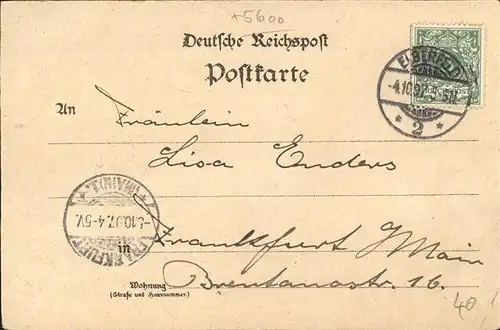 x5600
Deutsche Reichspost
Postkarte
ELBERFELD
-4.10.97. 5-6N.
* 2 *
An
Fräulein
Lisa Enders
FRANKFURT
(MAIN) 1.
-5.10.97. 4-5V.
in
Frankfurt Main
Brentanostr. 16.
Wohnung
(Straße und Hausnummer)
40